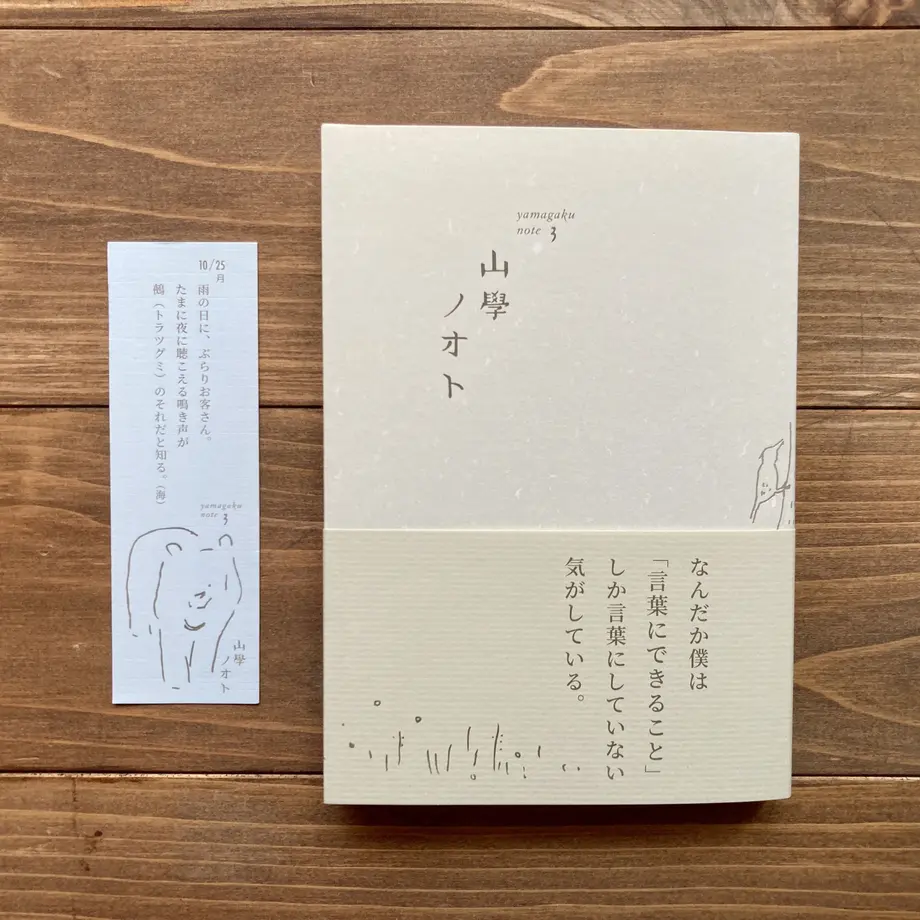 10/25
月
雨の日に、ぷらりお客さん。
たまに夜に聴こえる鳴き声が
鵺（トラツグミ）のそれだと知る。（海）
yamagaku
note 3
山學
ノオト
yamagaku
note 3
山學
ノオト
なんだか僕は
「言葉にできること」
しか言葉にしていない
気がしている。